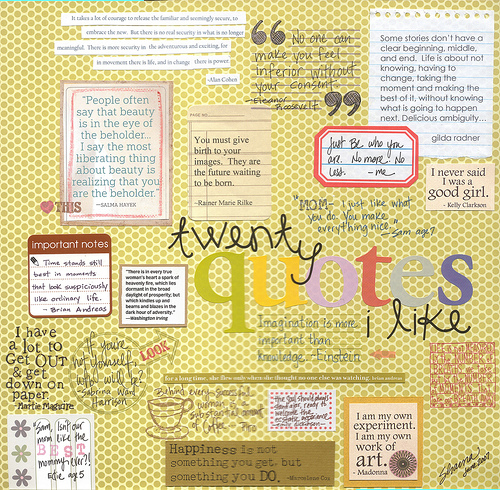 It takes a lot of courage to release the familiar and seemingly secure, to
embrace the new. But there is no real security in what is no longer
meaningful. There is more security in the adventurous and exciting, for
in movement there is life, and in change there is power.
-Alan Cohen
“ No one can
make you feel
inferior without
your consent.
-Eleanor
Roosevelt ”
Some stories don't have a
clear beginning, middle,
and end. Life is about not
knowing, having to
change, taking the
moment and making the
best of it, without knowing
what is going to happen
next. Delicious ambiguity...
gilda radner
"People often
say that beauty
is in the eye of
the beholder...
I say the most
liberating thing
about beauty is
realizing that you
are the beholder."
—SALMA HAYEK
♥ THIS
PAGE NO.
You must give
birth to your
images. They are
the future waiting
to be born.
-Rainer Marie Rilke
Just Be who you
are. No more. No
less. - me
I never said
I was a
good girl.
- Kelly Clarkson
"MOM- I just like what
you do. You make
everything nice."
-Sam age 7
twenty
quotes
i like
important notes
Time stands still
best in moments
that look suspiciously
like ordinary life.
- Brian Andreas
"There is in every true
woman's heart a spark of
heavenly fire, which lies
dormant in the broad
daylight of prosperity; but
which kindles up and
beams and blazes in the
dark hour of adversity."
—Washington Irving
Imagination is more
important than
knowledge. -Einstein
I have
a lot to
Get OUT
& get
down on
paper.
-Martie Maguire
If you're
not yourself,
who will be?
-Sabrina Ward
Harrison
LOOK
for a long time, she flew only when she thought no one else was watching. brian andreas
Behind every successful
woman
is a
substantial amount
of coffee.
LIFE is not MEASURED
by the NUMBER of
BREATHS we TAKE
"Sam, isn't our
mom like the
BEST
mommy, ever?!
Edie age 5
the soul should always
stand ajar, ready to
welcome the
ecstatic experience.
emily dickinson
Happiness is not
something you get, but
something you DO.
-Marcelene Cox
I am my own
experiment.
I am my own
work of
art.
- Madonna
Shanna
June 2007